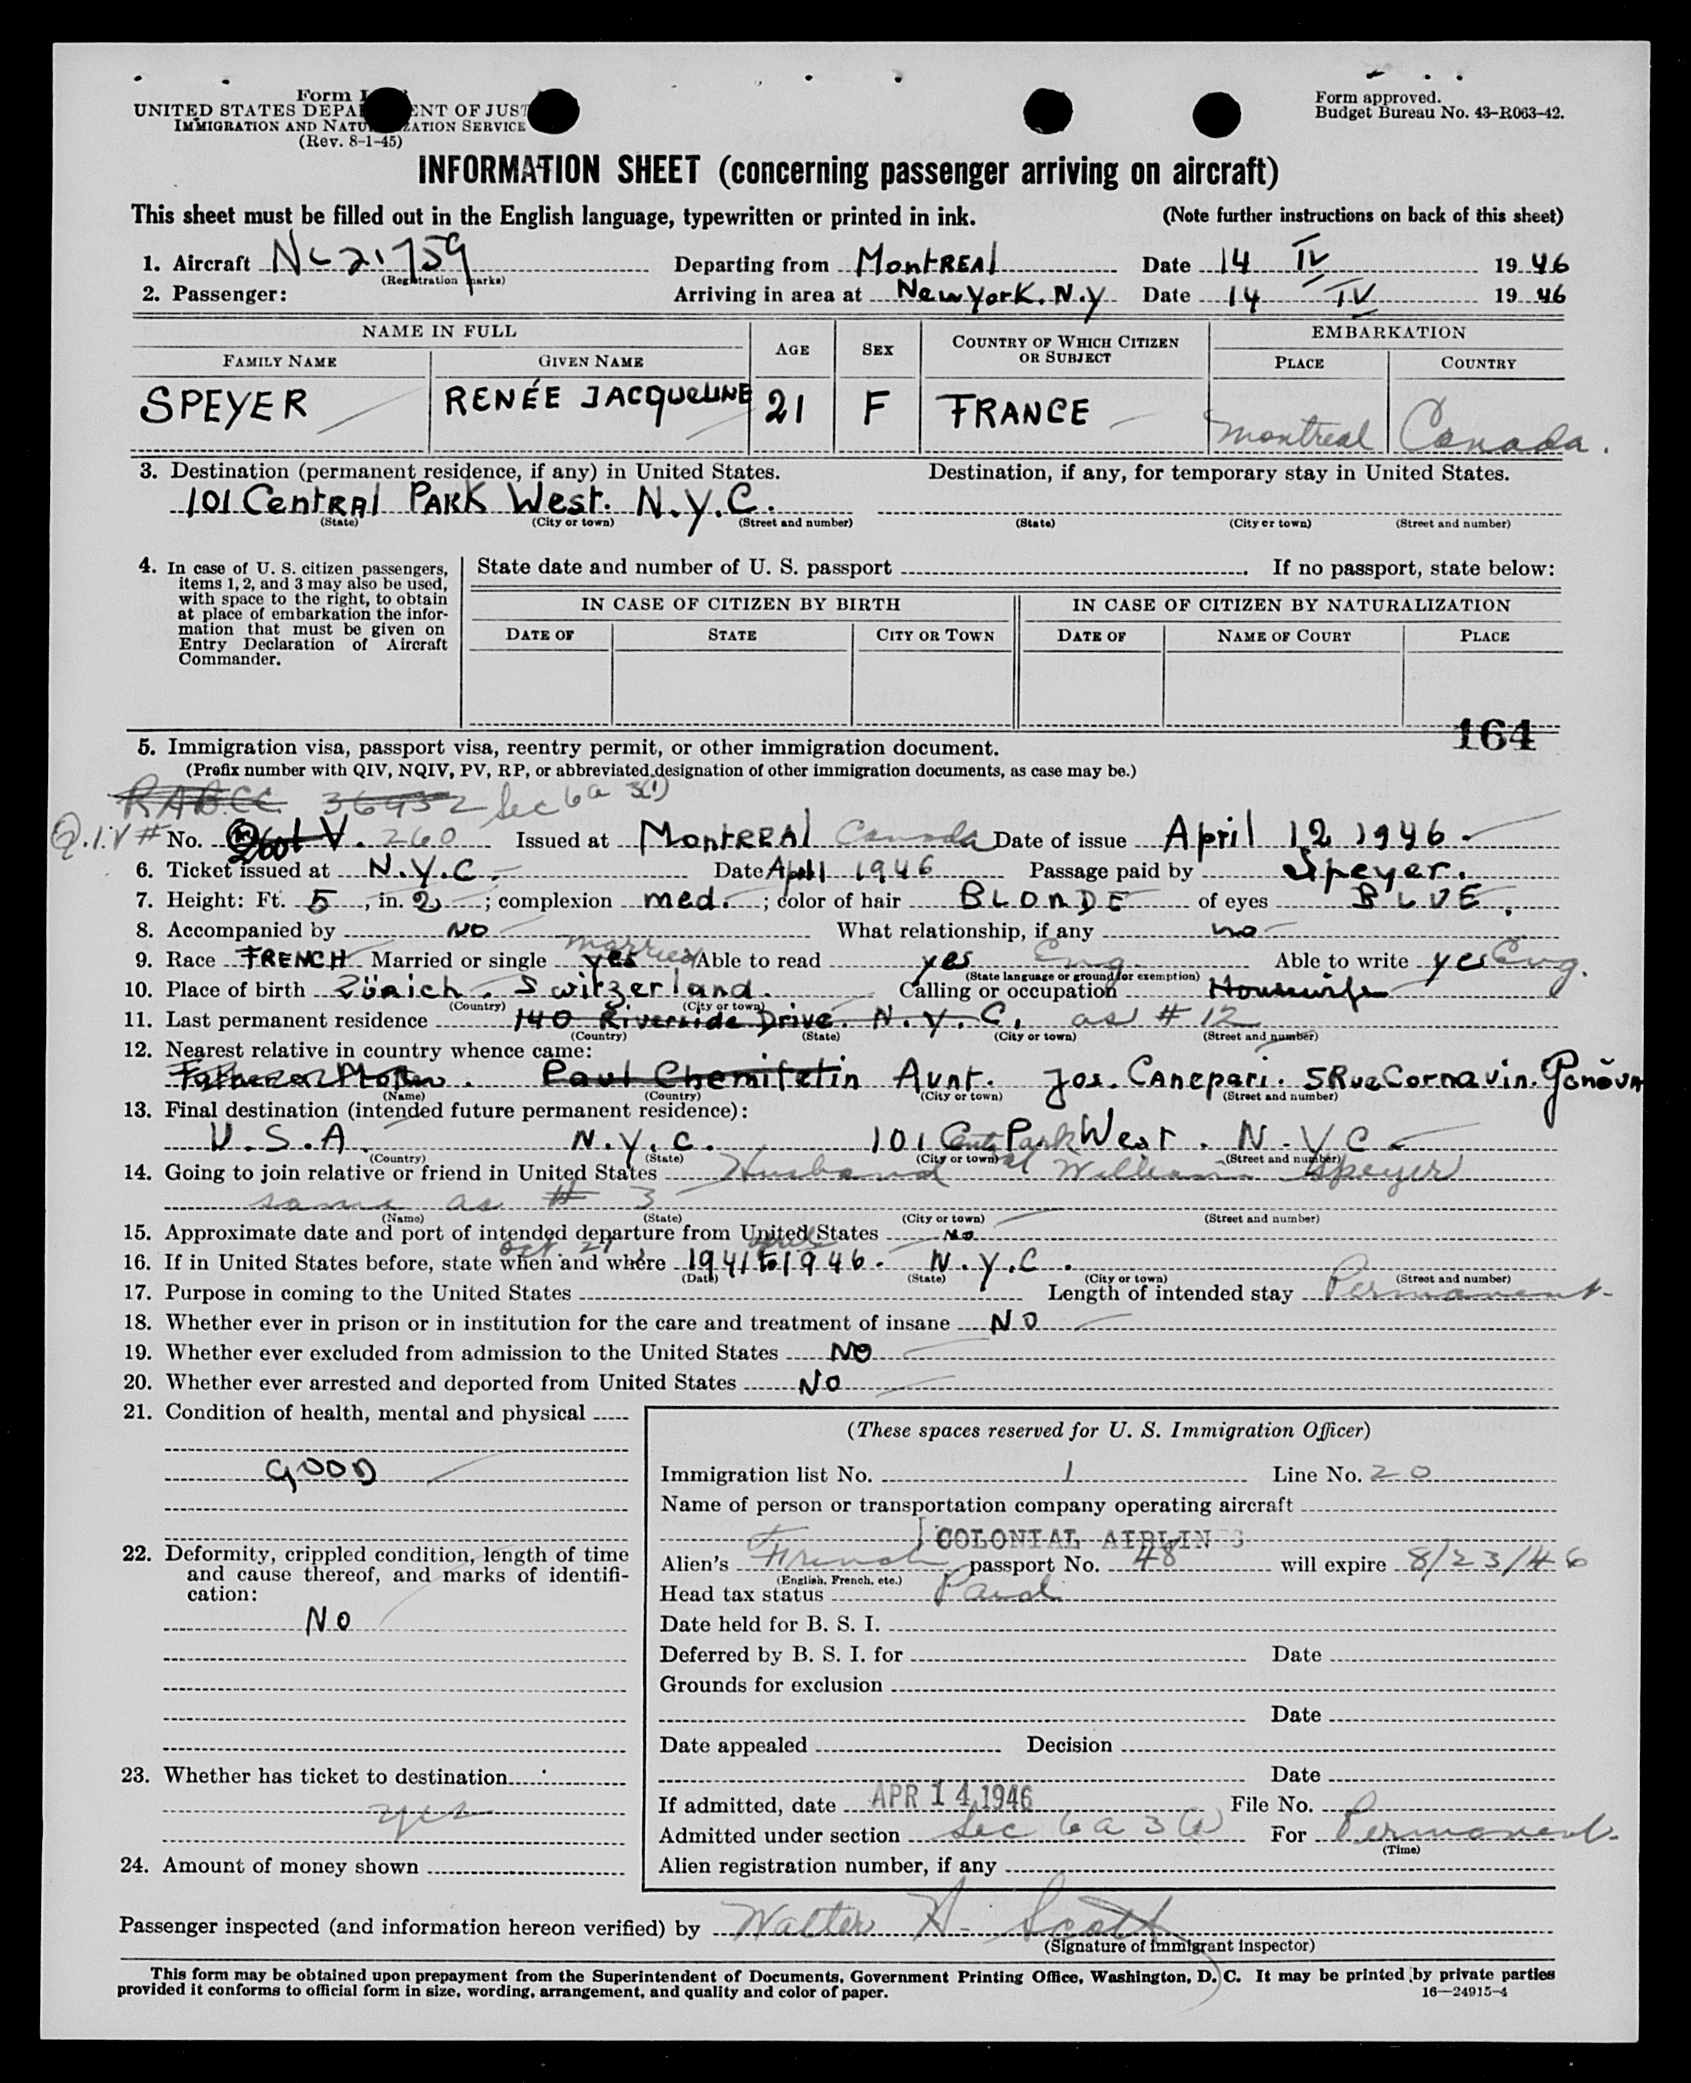 Form I
UNITED STATES DEPA ENT OF JUST
IMMIGRATION AND NATU ZATION SERVICE
(Rev. 8-1-45)
Form approved.
Budget Bureau No. 43-R063-42.
INFORMATION SHEET (concerning passenger arriving on aircraft)
This sheet must be filled out in the English language, typewritten or printed in ink. (Note further instructions on back of this sheet)
1. Aircraft NC 21759 Departing from MontREAl Date 14 IV 1946
(Registration marks)
2. Passenger: Arriving in area at New York. N.y Date 14 IV 1946
NAME IN FULL EMBARKATION
FAMILY NAME GIVEN NAME AGE SEX COUNTRY OF WHICH CITIZEN OR SUBJECT PLACE COUNTRY
SPEYER RENÉE JACQUELINE 21 F FRANCE montreal Canada.
3. Destination (permanent residence, if any) in United States. Destination, if any, for temporary stay in United States.
101 CentRAl PARK West. N.y.C.
(State) (City or town) (Street and number) (State) (City or town) (Street and number)
4. In case of U. S. citizen passengers, items 1, 2, and 3 may also be used, with space to the right, to obtain at place of embarkation the information that must be given on Entry Declaration of Aircraft Commander.
State date and number of U. S. passport . If no passport, state below:
IN CASE OF CITIZEN BY BIRTH IN CASE OF CITIZEN BY NATURALIZATION
DATE OF STATE CITY OR TOWN DATE OF NAME OF COURT PLACE
164
5. Immigration visa, passport visa, reentry permit, or other immigration document.
(Prefix number with QIV, NQIV, PV, RP, or abbreviated designation of other immigration documents, as case may be.)
Sec 6a 3(1)
Q.I.V # No. V. 260 Issued at MontREAl Canada Date of issue April 12 1946.
6. Ticket issued at N.y.C. Date April 1946 Passage paid by Speyer.
7. Height: Ft. 5, in. 2; complexion med.; color of hair BLONDE of eyes BLUE.
8. Accompanied by NO What relationship, if any no
9. Race FRENCH Married or single yes married Able to read yes Eng. Able to write yes Eng.
(State language or ground for exemption)
10. Place of birth Zürich. Switzerland. Calling or occupation Housewife
(Country) (City or town)
11. Last permanent residence 140 Riverside Drive. N.y.C. as # 12
(Country) (State) (City or town) (Street and number)
12. Nearest relative in country whence came:
Aunt. Jos. Canepari. 5 Rue Cornavin.
(Name) (Country) (City or town) (Street and number)
13. Final destination (intended future permanent residence):
U.S.A. N.y.c. 101 Central Park West. N.Y.C.
(Country) (State) (City or town) (Street and number)
14. Going to join relative or friend in United States Husband William Speyer
same as # 3
(Name) (State) (City or town) (Street and number)
15. Approximate date and port of intended departure from United States No
16. If in United States before, state when and where oct. 21 1941 to 1946. N.y.C.
(Date) (State) (City or town) (Street and number)
17. Purpose in coming to the United States Length of intended stay Permanent
18. Whether ever in prison or in institution for the care and treatment of insane NO
19. Whether ever excluded from admission to the United States NO
20. Whether ever arrested and deported from United States NO
21. Condition of health, mental and physical
GOOD
22. Deformity, crippled condition, length of time and cause thereof, and marks of identification:
NO
23. Whether has ticket to destination
yes
24. Amount of money shown
(These spaces reserved for U. S. Immigration Officer)
Immigration list No. 1 Line No. 20
Name of person or transportation company operating aircraft
COLONIAL AIRLINES
Alien's French passport No. 48 will expire 8/23/46
(English, French, etc.)
Head tax status Paid
Date held for B. S. I.
Deferred by B. S. I. for Date
Grounds for exclusion
Date
Date appealed Decision
Date
If admitted, date APR 14 1946 File No.
Admitted under section Sec 6a 3(1) For Permanent
(Time)
Alien registration number, if any
Passenger inspected (and information hereon verified) by Walter H. Scott
(Signature of immigrant inspector)
This form may be obtained upon prepayment from the Superintendent of Documents, Government Printing Office, Washington, D. C. It may be printed by private parties
provided it conforms to official form in size, wording, arrangement, and quality and color of paper. 16—24915-4